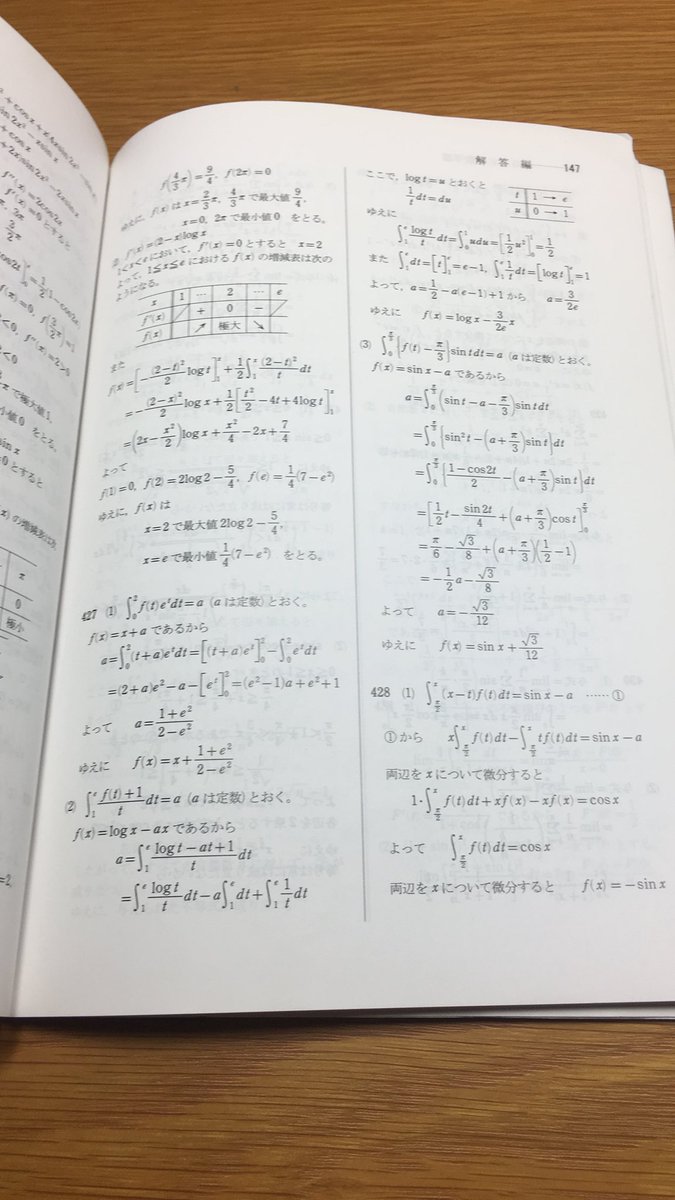 解答編 147
f(4/3 π)=9/4, f(2π)=0
ゆえに, f(x)はx=2/3 π, 4/3 πで最大値9/4,
x=0, 2πで最小値0 をとる。
f'(x)=(2-x)logx
1<x<eにおいて, f'(x)=0とすると x=2
よって, 1≦x≦eにおけるf(x)の増減表は次の
ようになる。
x 1 … 2 … e
f'(x) + 0 −
f(x) ↗ 極大 ↘
また
f(x)=[-(2-t)²/2 logt]₁ˣ+1/2∫₁ˣ (2-t)²/t dt
=-(2-x)²/2 logx+1/2[t²/2-4t+4logt]₁ˣ
=(2x-x²/2)logx+x²/4-2x+7/4
よって
f(1)=0, f(2)=2log2-5/4, f(e)=1/4(7-e²)
ゆえに, f(x)は
x=2で最大値2log2-5/4,
x=eで最小値1/4(7-e²) をとる。
427 (1) ∫₀² f(t)eᵗdt=a (aは定数)とおく。
f(x)=x+aであるから
a=∫₀²(t+a)eᵗdt=[(t+a)eᵗ]₀²-∫₀²eᵗdt
=(2+a)e²-a-[eᵗ]₀²=(e²-1)a+e²+1
よって a=(1+e²)/(2-e²)
ゆえに f(x)=x+(1+e²)/(2-e²)
(2) ∫₁ᵉ (f(t)+1)/t dt=a (aは定数)とおく。
f(x)=logx-axであるから
a=∫₁ᵉ (logt-at+1)/t dt
=∫₁ᵉ logt/t dt-a∫₁ᵉdt+∫₁ᵉ 1/t dt
ここで, logt=uとおくと
1/t dt=du
t 1→e
u 0→1
ゆえに
∫₁ᵉ logt/t dt=∫₀¹udu=[1/2 u²]₀¹=1/2
また ∫₁ᵉdt=[t]₁ᵉ=e-1, ∫₁ᵉ 1/t dt=[logt]₁ᵉ=1
よって, a=1/2-a(e-1)+1から a=3/2e
ゆえに f(x)=logx-3/2e x
(3) ∫₀^(π/3) {f(t)-π/3}sintdt=a (aは定数)とおく。
f(x)=sinx-aであるから
a=∫₀^(π/3) (sint-a-π/3)sintdt
=∫₀^(π/3) {sin²t-(a+π/3)sint}dt
=∫₀^(π/3) {(1-cos2t)/2-(a+π/3)sint}dt
=[1/2 t-sin2t/4+(a+π/3)cost]₀^(π/3)
=π/6-√3/8+(a+π/3)(1/2-1)
=-1/2 a-√3/8
よって a=-√3/12
ゆえに f(x)=sinx+√3/12
428 (1) ∫_(π/2)^x (x-t)f(t)dt=sinx-a ……①
①から x∫_(π/2)^x f(t)dt-∫_(π/2)^x tf(t)dt=sinx-a
両辺をxについて微分すると
1・∫_(π/2)^x f(t)dt+xf(x)-xf(x)=cosx
よって ∫_(π/2)^x f(t)dt=cosx
両辺をxについて微分すると f(x)=-sinx